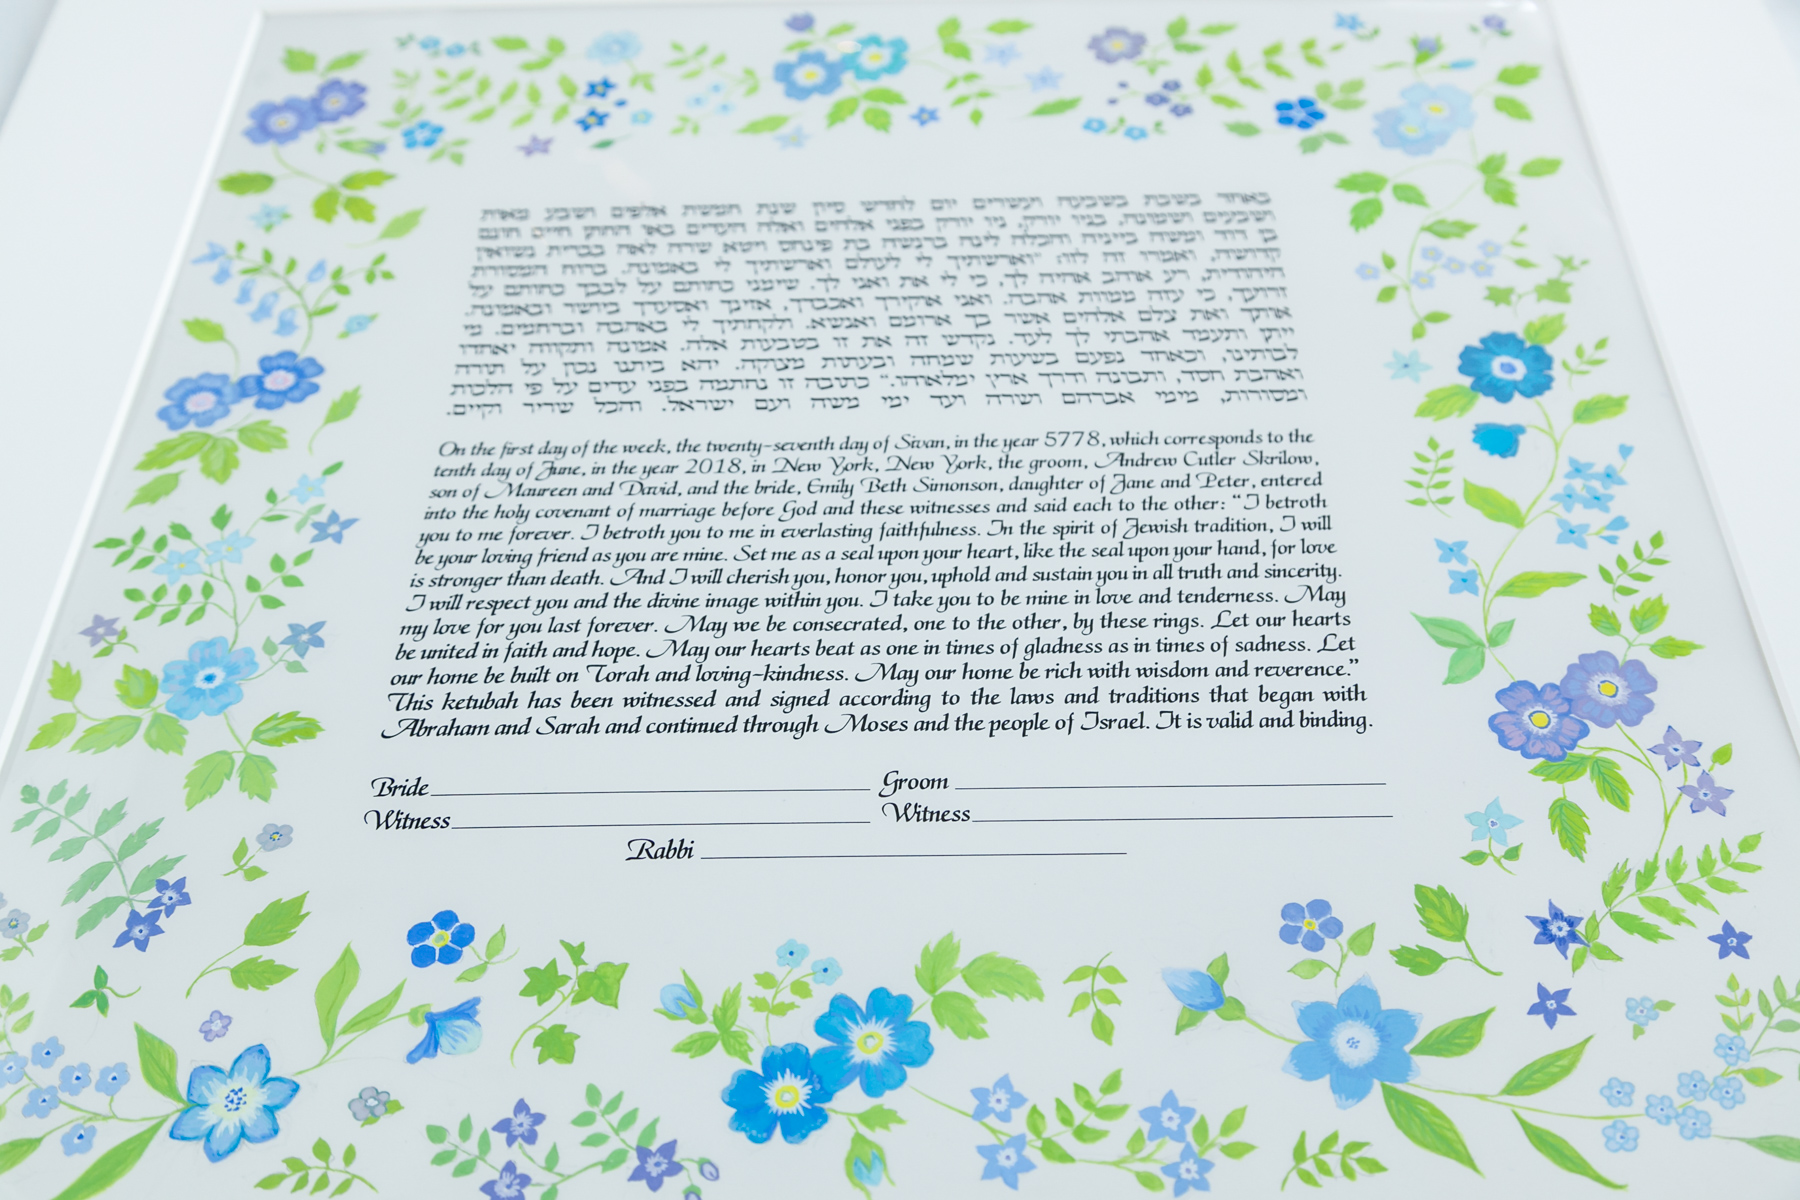 באחד בשבת בשבעה ועשרים יום לחדש סיון שנת חמשת אלפים ושבע מאות
ושבעים ושמונה, בניו יורק, ניו יורק בפני אלהים ואלה העדים באו החתן חיים תנחום
בן דוד ומשה ביינה והכלה לינה ברנשה בת פינחס ויטא שרה לאה בברית נשואין
קדושה, ואמרו זה לזו: "וארשתיך לי לעולם וארשתיך לי באמונה. ברוח המסורת
היהודית, רע אהב אהיה לך, כי לי את ואני לך. שימני כחותם על לבבך כחותם על
זרועך, כי עזה ממוות אהבה. ואני אוקירך ואכבדך, אזינך ואסעדך ביושר ובאמונה.
אותך ואת צלם אלהים אשר בך ארומם ואנשא. ולקחתיך לי באהבה וברחמים. מי
ייתן ותעמד אהבתי לך לעד. נקדש זה את זו בטבעות אלה. אמונה ותקווה יאחדו
לבותינו, וכאחד נפעם בשעות שמחה ובעתות מצוקה. יהא ביתנו נכון על תורה
ואהבת חסד, ותבונה ודרך ארץ ימלאוהו." כתובה זו נחתמה בפני עדים על פי הלכות
ומסורות, מימי אברהם ושרה ועד ימי משה ועם ישראל. והכל שריר וקיים.
On the first day of the week, the twenty-seventh day of Sivan, in the year 5778, which corresponds to the
tenth day of June, in the year 2018, in New York, New York, the groom, Andrew Cutler Skrilow,
son of Maureen and David, and the bride, Emily Beth Simonson, daughter of Jane and Peter, entered
into the holy covenant of marriage before God and these witnesses and said each to the other: "I betroth
you to me forever. I betroth you to me in everlasting faithfulness. In the spirit of Jewish tradition, I will
be your loving friend as you are mine. Set me as a seal upon your heart, like the seal upon your hand, for love
is stronger than death. And I will cherish you, honor you, uphold and sustain you in all truth and sincerity.
I will respect you and the divine image within you. I take you to be mine in love and tenderness. May
my love for you last forever. May we be consecrated, one to the other, by these rings. Let our hearts
be united in faith and hope. May our hearts beat as one in times of gladness as in times of sadness. Let
our home be built on Torah and loving-kindness. May our home be rich with wisdom and reverence."
This ketubah has been witnessed and signed according to the laws and traditions that began with
Abraham and Sarah and continued through Moses and the people of Israel. It is valid and binding.
Bride Groom
Witness Witness
Rabbi